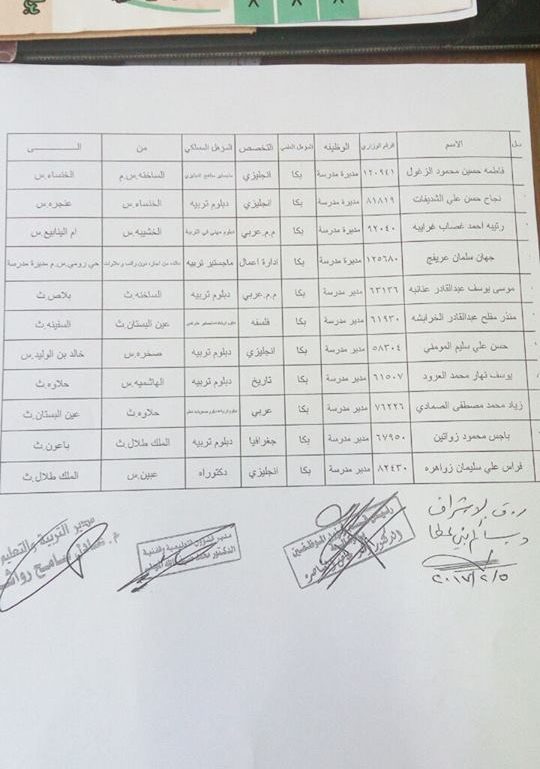 سل الاسم الرقم الوزاري الوظيفه المؤهل العلمي التخصص المؤهل المسلكي من الــــــى
فاطمه حسين محمود الزغول ١٢٠٩٤١ مديرة مدرسة بكا انجليزي الساخنه.س.م الخنساء.س
نجاح حسن علي الشديفات ٨١٨١٩ مديرة مدرسة بكا انجليزي دبلوم تربيه الخنساء.س عنجره.س
رتيبه احمد غصاب غرايبه ٩٢٠٤٠ مديرة مدرسة بكا م.م.عربي دبلوم مهني في التربية الخشيبه.س ام الينابيع.س
جهان سلمان عريفج ١٢٥٦٨٠ مديرة مدرسة بكا ادارة اعمال ماجستير تربيه حي رومي.س.م مديرة مدرسة
موسى يوسف عبدالقادر عنانبه ٦٣١٣٦ مدير مدرسة بكا م.م.عربي دبلوم تربيه الساخنه.ث بلاص.ث
منذر مفلح عبدالقادر الخرابشه ٦١٩٣٠ مدير مدرسة بكا فلسفه عين البستان.ث السفينه.ث
حسن علي سليم المومني ٥٨٣٠٤ مدير مدرسة بكا انجليزي دبلوم تربيه صخره.س خالد بن الوليد.س
يوسف نهار محمد العرود ٦١٥٠٧ مدير مدرسة بكا تاريخ دبلوم تربيه الهاشميه.س حلاوه.ث
زياد محمد مصطفى الصمادي ٧٦٢٢٦ مدير مدرسة بكا عربي حلاوه.ث عين البستان.ث
باجس محمود زواتين ٦٧٩٥٠ مدير مدرسة بكا جغرافيا دبلوم تربيه الملك طلال.ث باعون.ث
فراس علي سليمان زواهره ٨٢٤٣٠ مدير مدرسة بكا انجليزي دكتوراه عبين.س الملك طلال.ث
٢٠١٧/٢/٥
الدكتور
مدير التربية والتعليم